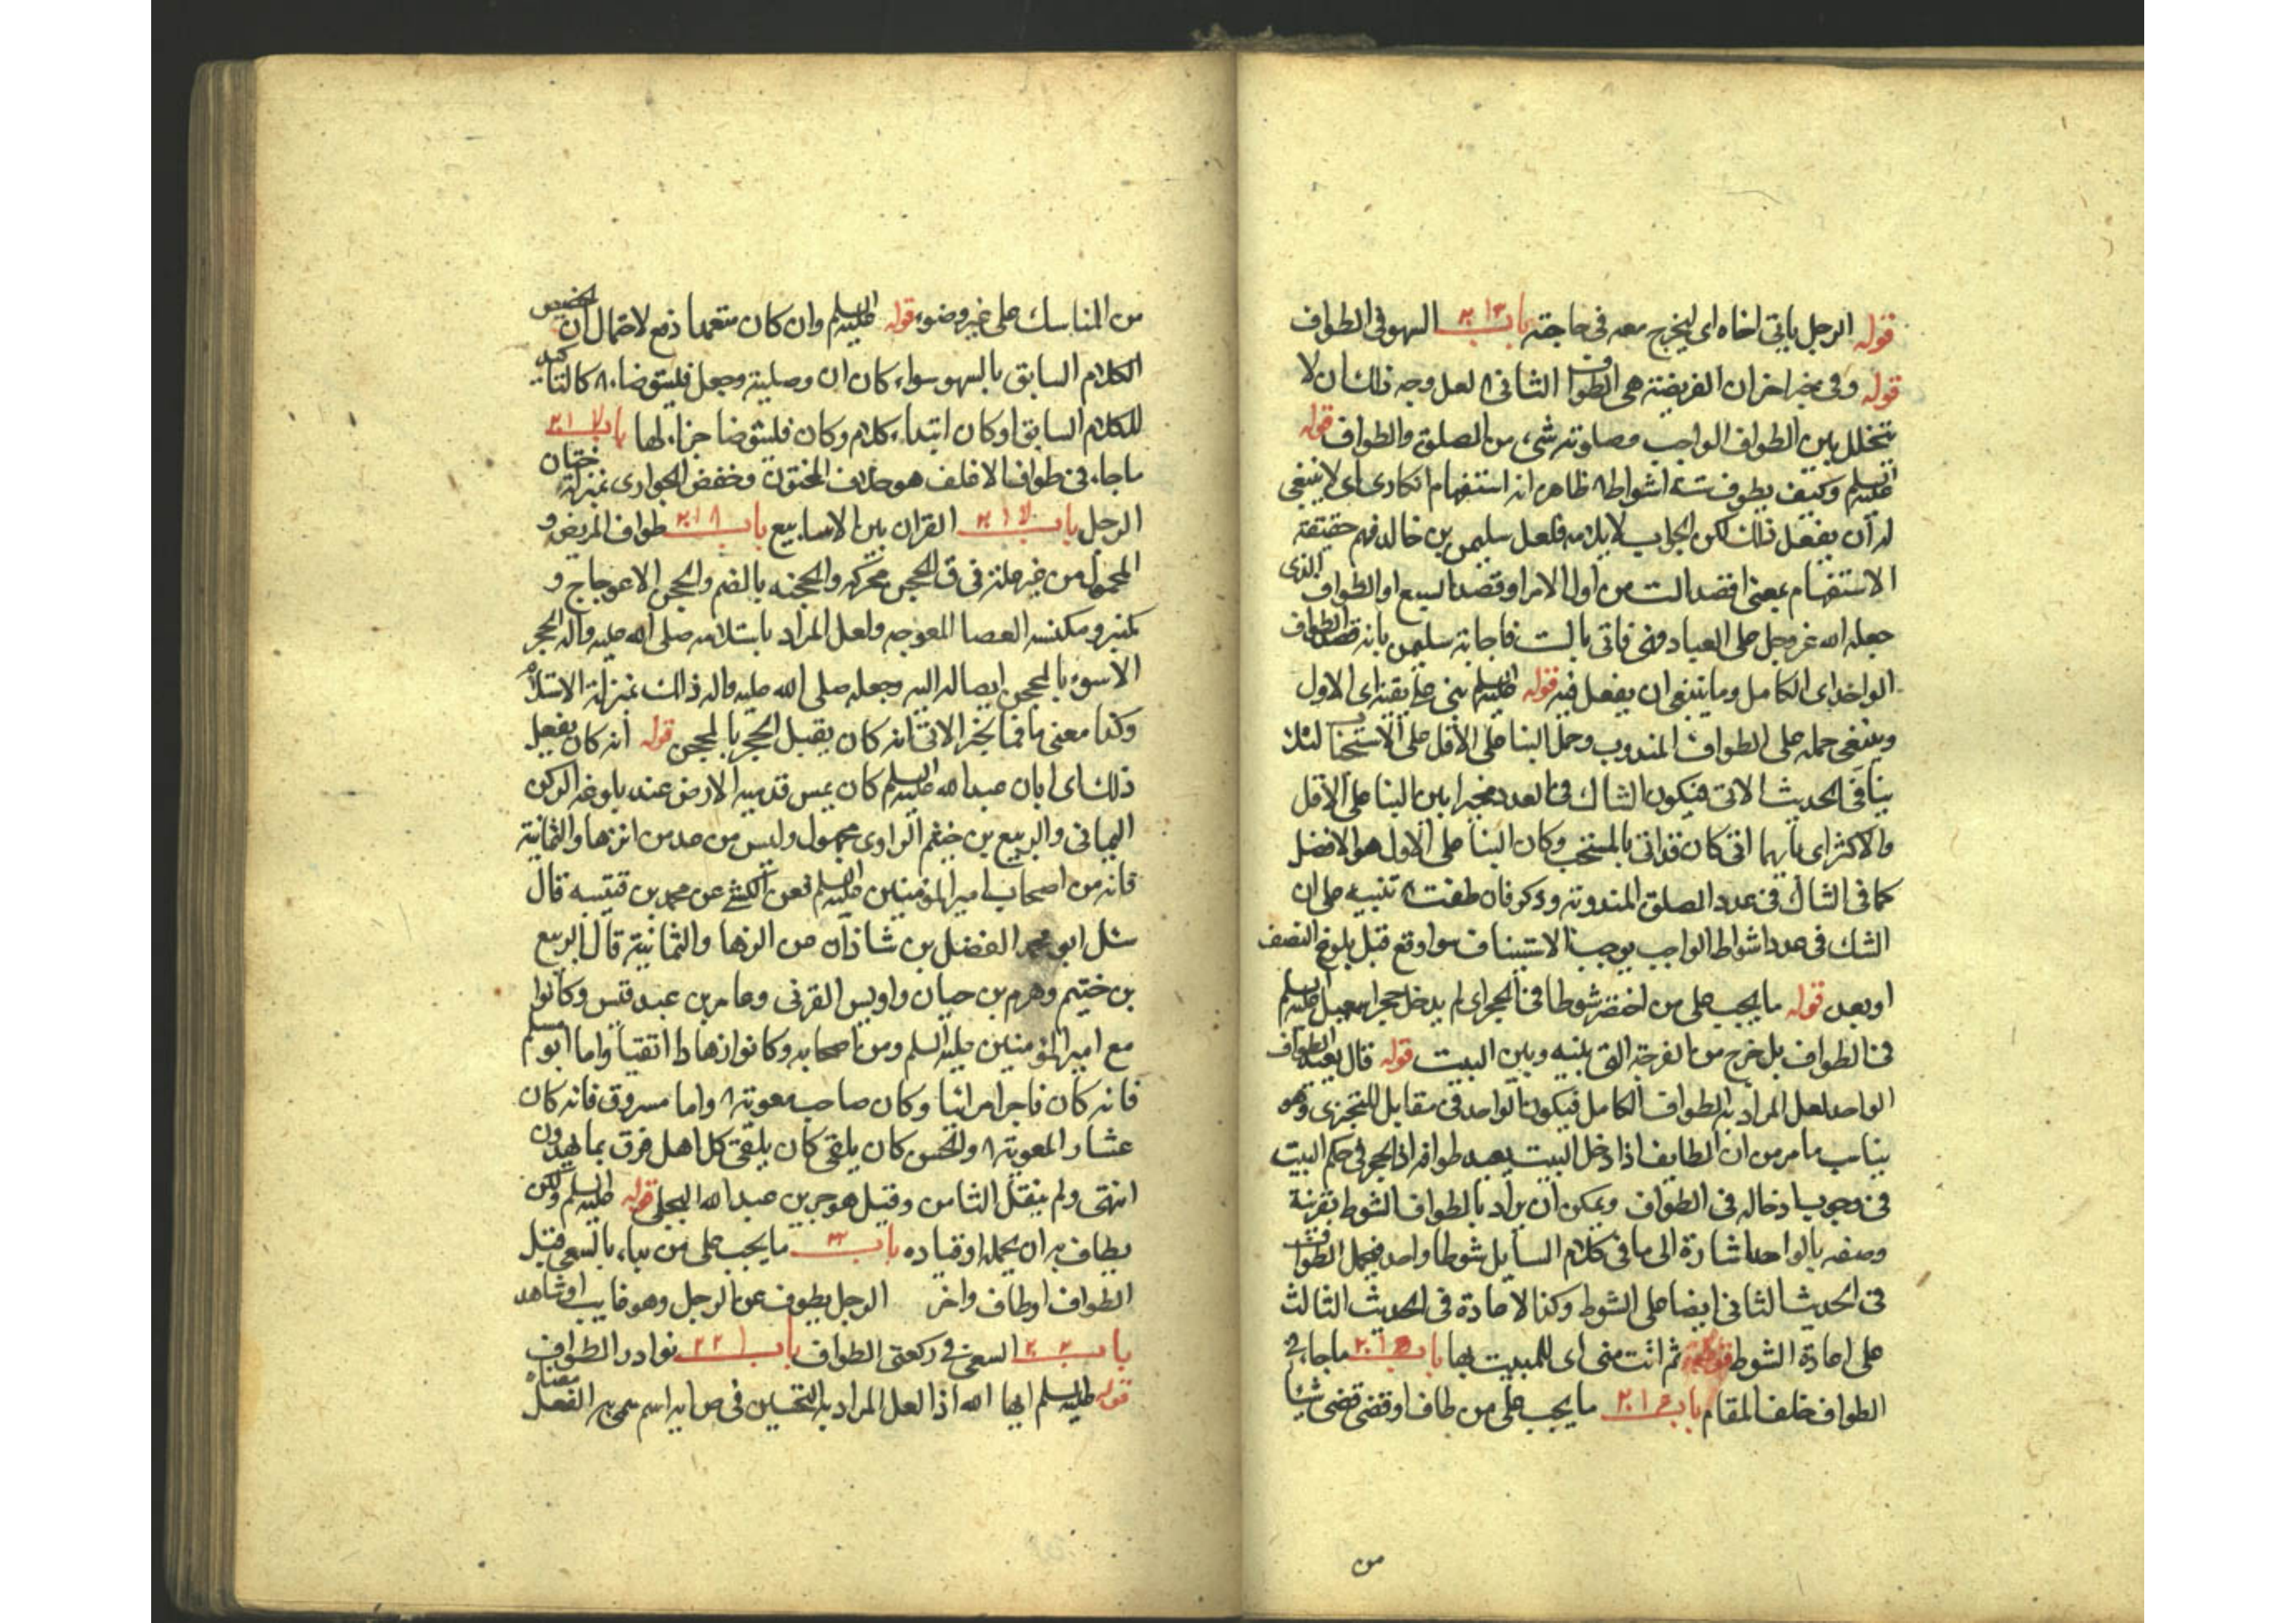 قوله الرجل ياتى اخاه اى ليخرج معه فى حاجته باب ٢١٣ السهو فى الطواف
قوله وفى خبر اخر ان الفريضة هى الطواف الثانى ٨ لعل وجه ذلك ان لا
يتخلل بين الطواف الواجب وصلوته شىء من الصلوة والطواف قوله
عليه السلم وكيف يطوف ستة اشواط ٨ ظاهره انه استفهام انكارى اى لا ينبغى
له ان يفعل ذلك لكن الجواب لا يلائمه فلعل سليمن بن خالد فهم حقيقة
الاستفهام بمعنى اقصد الست من اول الامر او قصد السبع او الطواف الذى
جعله الله عز وجل على العباد فاتى بالست فاجابة سليمن بانه قصد الطواف
الواحد اى الكامل وما ينبغى ان يفعل فيه قوله عليه السلم بنى على يقينه اى الاول
وينبغى حمله على الطواف المندوب وحمل البنا على الاقل على الاستحباب لئلا
ينافى الحديث الاتى فيكون الشاك فى العدد مخيرا بين البنا على الاقل
والاكثر اى بايهما اتى كان قد اتى بالمستحب وكان البنا على الاول هو الافضل
كما فى الشاك فى عدد الصلوة المندوبة وذكر فان طفت ٨ تنبيه على ان
الشك فى عدد اشواط الواجب يوجب الاستيناف سوا وقع قبل بلوغ النصف
او بعده قوله ما يجب على من اختصر شوطا فى الحجر اى لم يدخل حجر اسمعيل عليه السلم
فى الطواف بل خرج من الفرجة التى بينه وبين البيت قوله قال يعيد الطواف
الواحد لعل المراد به الطواف الكامل فيكون الواحد فى مقابل المتجزى وهو
يناسب ما مر من ان الطايف اذا دخل البيت يعيد طوافه اذ الحجر فى حكم البيت
فى وجوب ادخاله فى الطواف ويمكن ان يراد بالطواف الشوط بقرينة
وصفه بالواحد اشارة الى ما فى كلام السايل شوطا واحد فيحمل الطواف
فى الحديث الثانى ايضا على الشوط وكذا الاعادة فى الحديث الثالث
على اعادة الشوط ثم ائت منى اى للمبيت بها باب ٢١٥ ما جاء فى
الطواف خلف المقام باب ٢١٤ ما يجب على من طاف او قضى شيئا
من
من المناسك على غير وضوء قوله عليه السلم وان كان متعمدا دفع لاحتمال ان
الكلام السابق بالسهو سواء كان ان وصلية وجعل فليتوضا ٨ كالتاكيد
للكلام السابق او كان ابتداء كلام وكان فليتوضا جزاء لها باب
ما جاء فى طواف الاغلف هو خلاف المختون وخفض الجوارى بمنزلة ختان
الرجل باب ٢١٧ القران بين الاسابيع باب ٢١٨ طواف المريض و
المحمول من غير علة فى ق الحجن محركة والحجنه بالضم والحجن الاعوجاج و
كمنبر ومكنسه العصا المعوجه ولعل المراد باستلامه صلى الله عليه واله الحجر
الاسود بالمحجن ايصاله اليه وجعله صلى الله عليه واله ذلك بمنزلة الاستلام
وكذا معنى ما فى الخبر الاتى انه كان يقبل الحجر بالمحجن قوله انه كان يفعل
ذلك اى ابان عبد الله عليه السلم كان يمس قدميه الارض عند بلوغه الركن
اليمانى والربيع بن خثيم الراوى مجهول وليس من عد من الزهاد الثمانية
فانه من اصحاب امير المؤمنين عليه السلم فعن الكشى عن محمد بن قتيبه قال
سئل ابو محمد الفضل بن شاذان عن الزهاد الثمانية قال الربيع
بن خثيم وهرم بن حيان واويس القرنى وعامر بن عبد قيس وكانوا
مع امير المؤمنين عليه السلم ومن اصحابه وكانوا زهادا اتقيا واما ابو مسلم
فانه كان فاجرا مرائيا وكان صاحب معوية ٨ واما مسروق فانه كان
عشارا لمعوية ٨ والحسن كان يلقى كان يلقى كل اهل فرق بما يهوون
انتهى ولم ينقل الثامن وقيل هو جرير بن عبد الله البجلى قوله عليه السلم ولكن
يطاف به ان يحمله او قياده باب ما يجب على من بداء بالسعى قبل
الطواف او طاف واخر الرجل يطوف عن الرجل وهو غايب او شاهد
باب ٢٢٠ السعى فى ركعتى الطواف باب ٢٢١ نوادر الطواف
قوله عليه السلم ايها الله اذا لعل المراد به التحسين فى اسم سمى به الفعل معناه